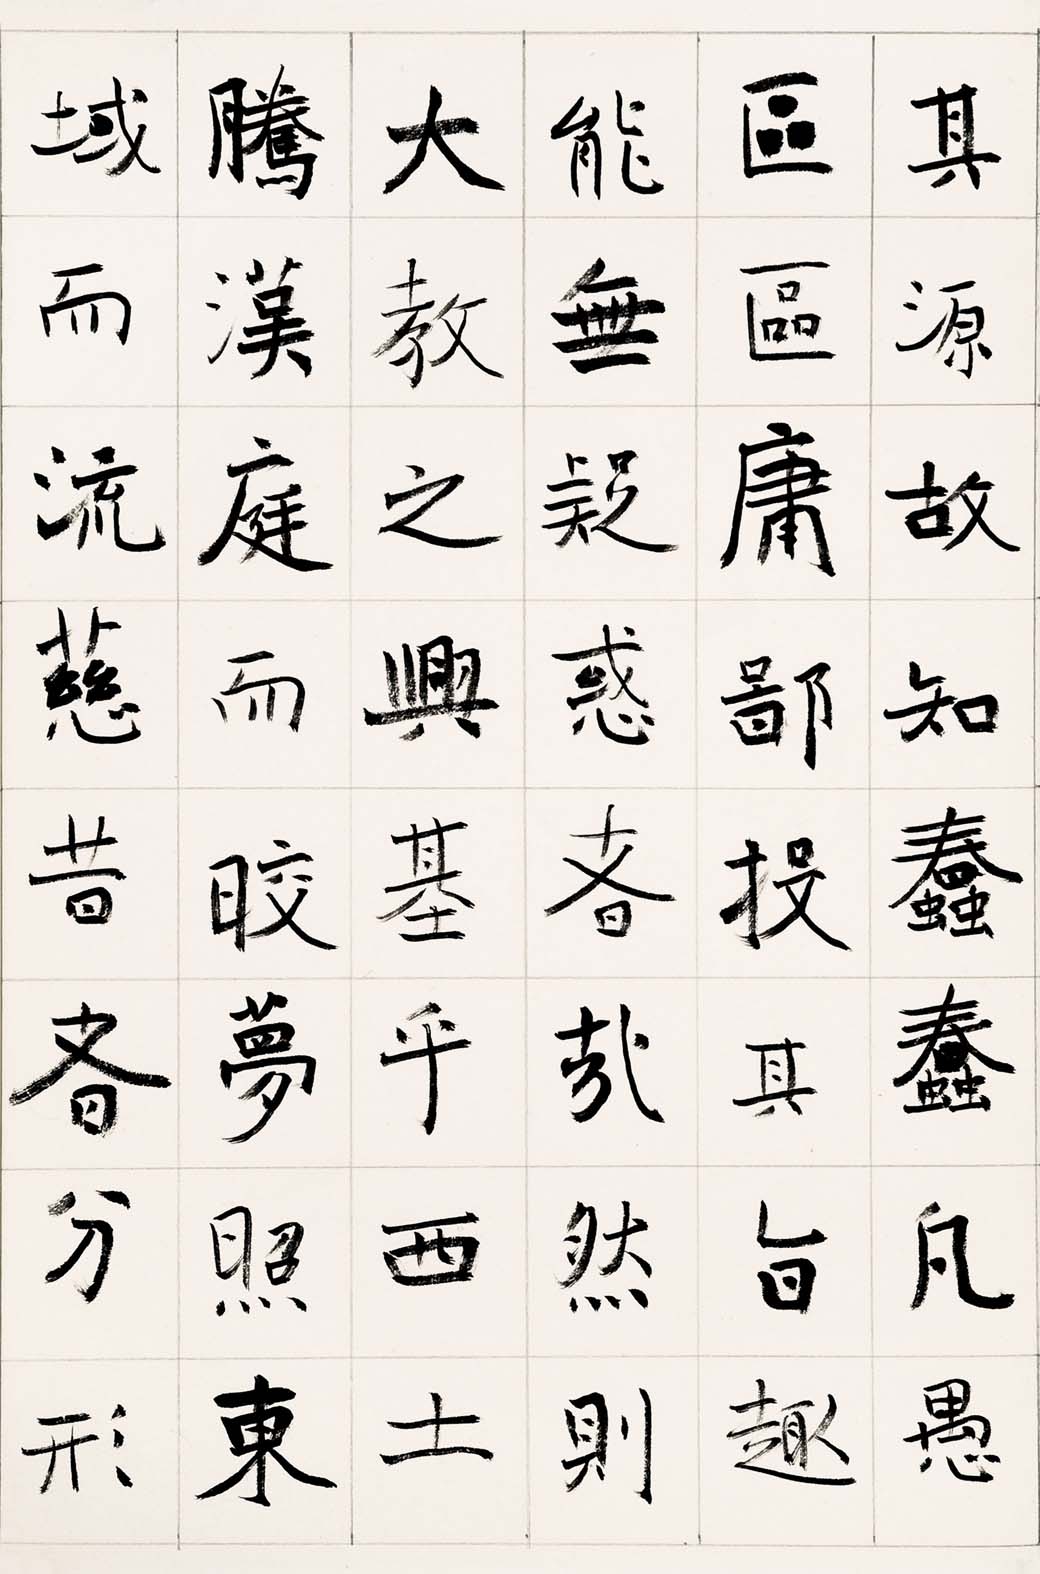 其源故知蠢蠢凡愚
區區庸鄙投其旨趣
能無疑惑者哉然則
大教之興基乎西土
騰漢庭而皎夢照東
域而流慈昔者分形